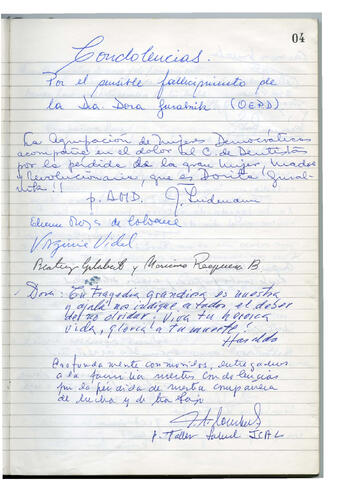 04
Condolencias.
Por el sensible fallecimiento de
la Dra. Dora Guralnik (OEPD)
La Agrupación de Mujeres Democráticas
acompaña en el dolor al C. de Dentistas
por la pérdida de la gran mujer, madre
y Revolucionaria, que es Dorita Gural-
nik!!
p. AMD.
Virginia Vidal
Beatriz Gilabert y Mariano Requena B.
Dora: Tu tragedia grandiosa es nuestra
y ojalá nos indique a todos el deber
de no olvidar; Viva tu heroica
vida, gloria a tu muerte!
Haroldo
Profundamente conmovidos, entregamos
a la familia nuestras condolencias
por la pérdida de nuestra compañera
de lucha y de trabajo
p. Taller Salud ICAL